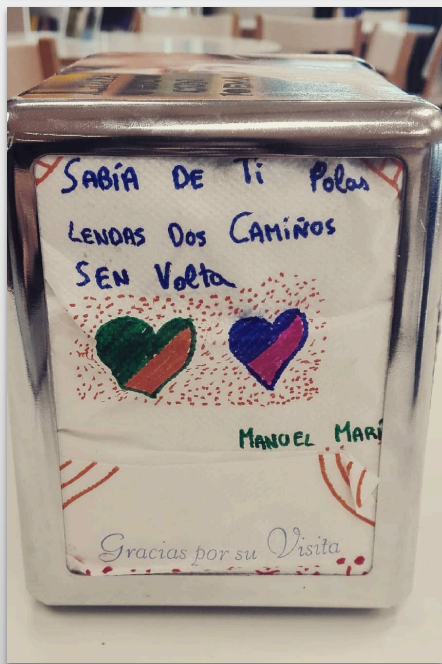 SABÍA DE Ti Polas
LENDAS DOS CAMIÑOS
SEN Volta
MANUEL MARÍ
Gracias por su Visita